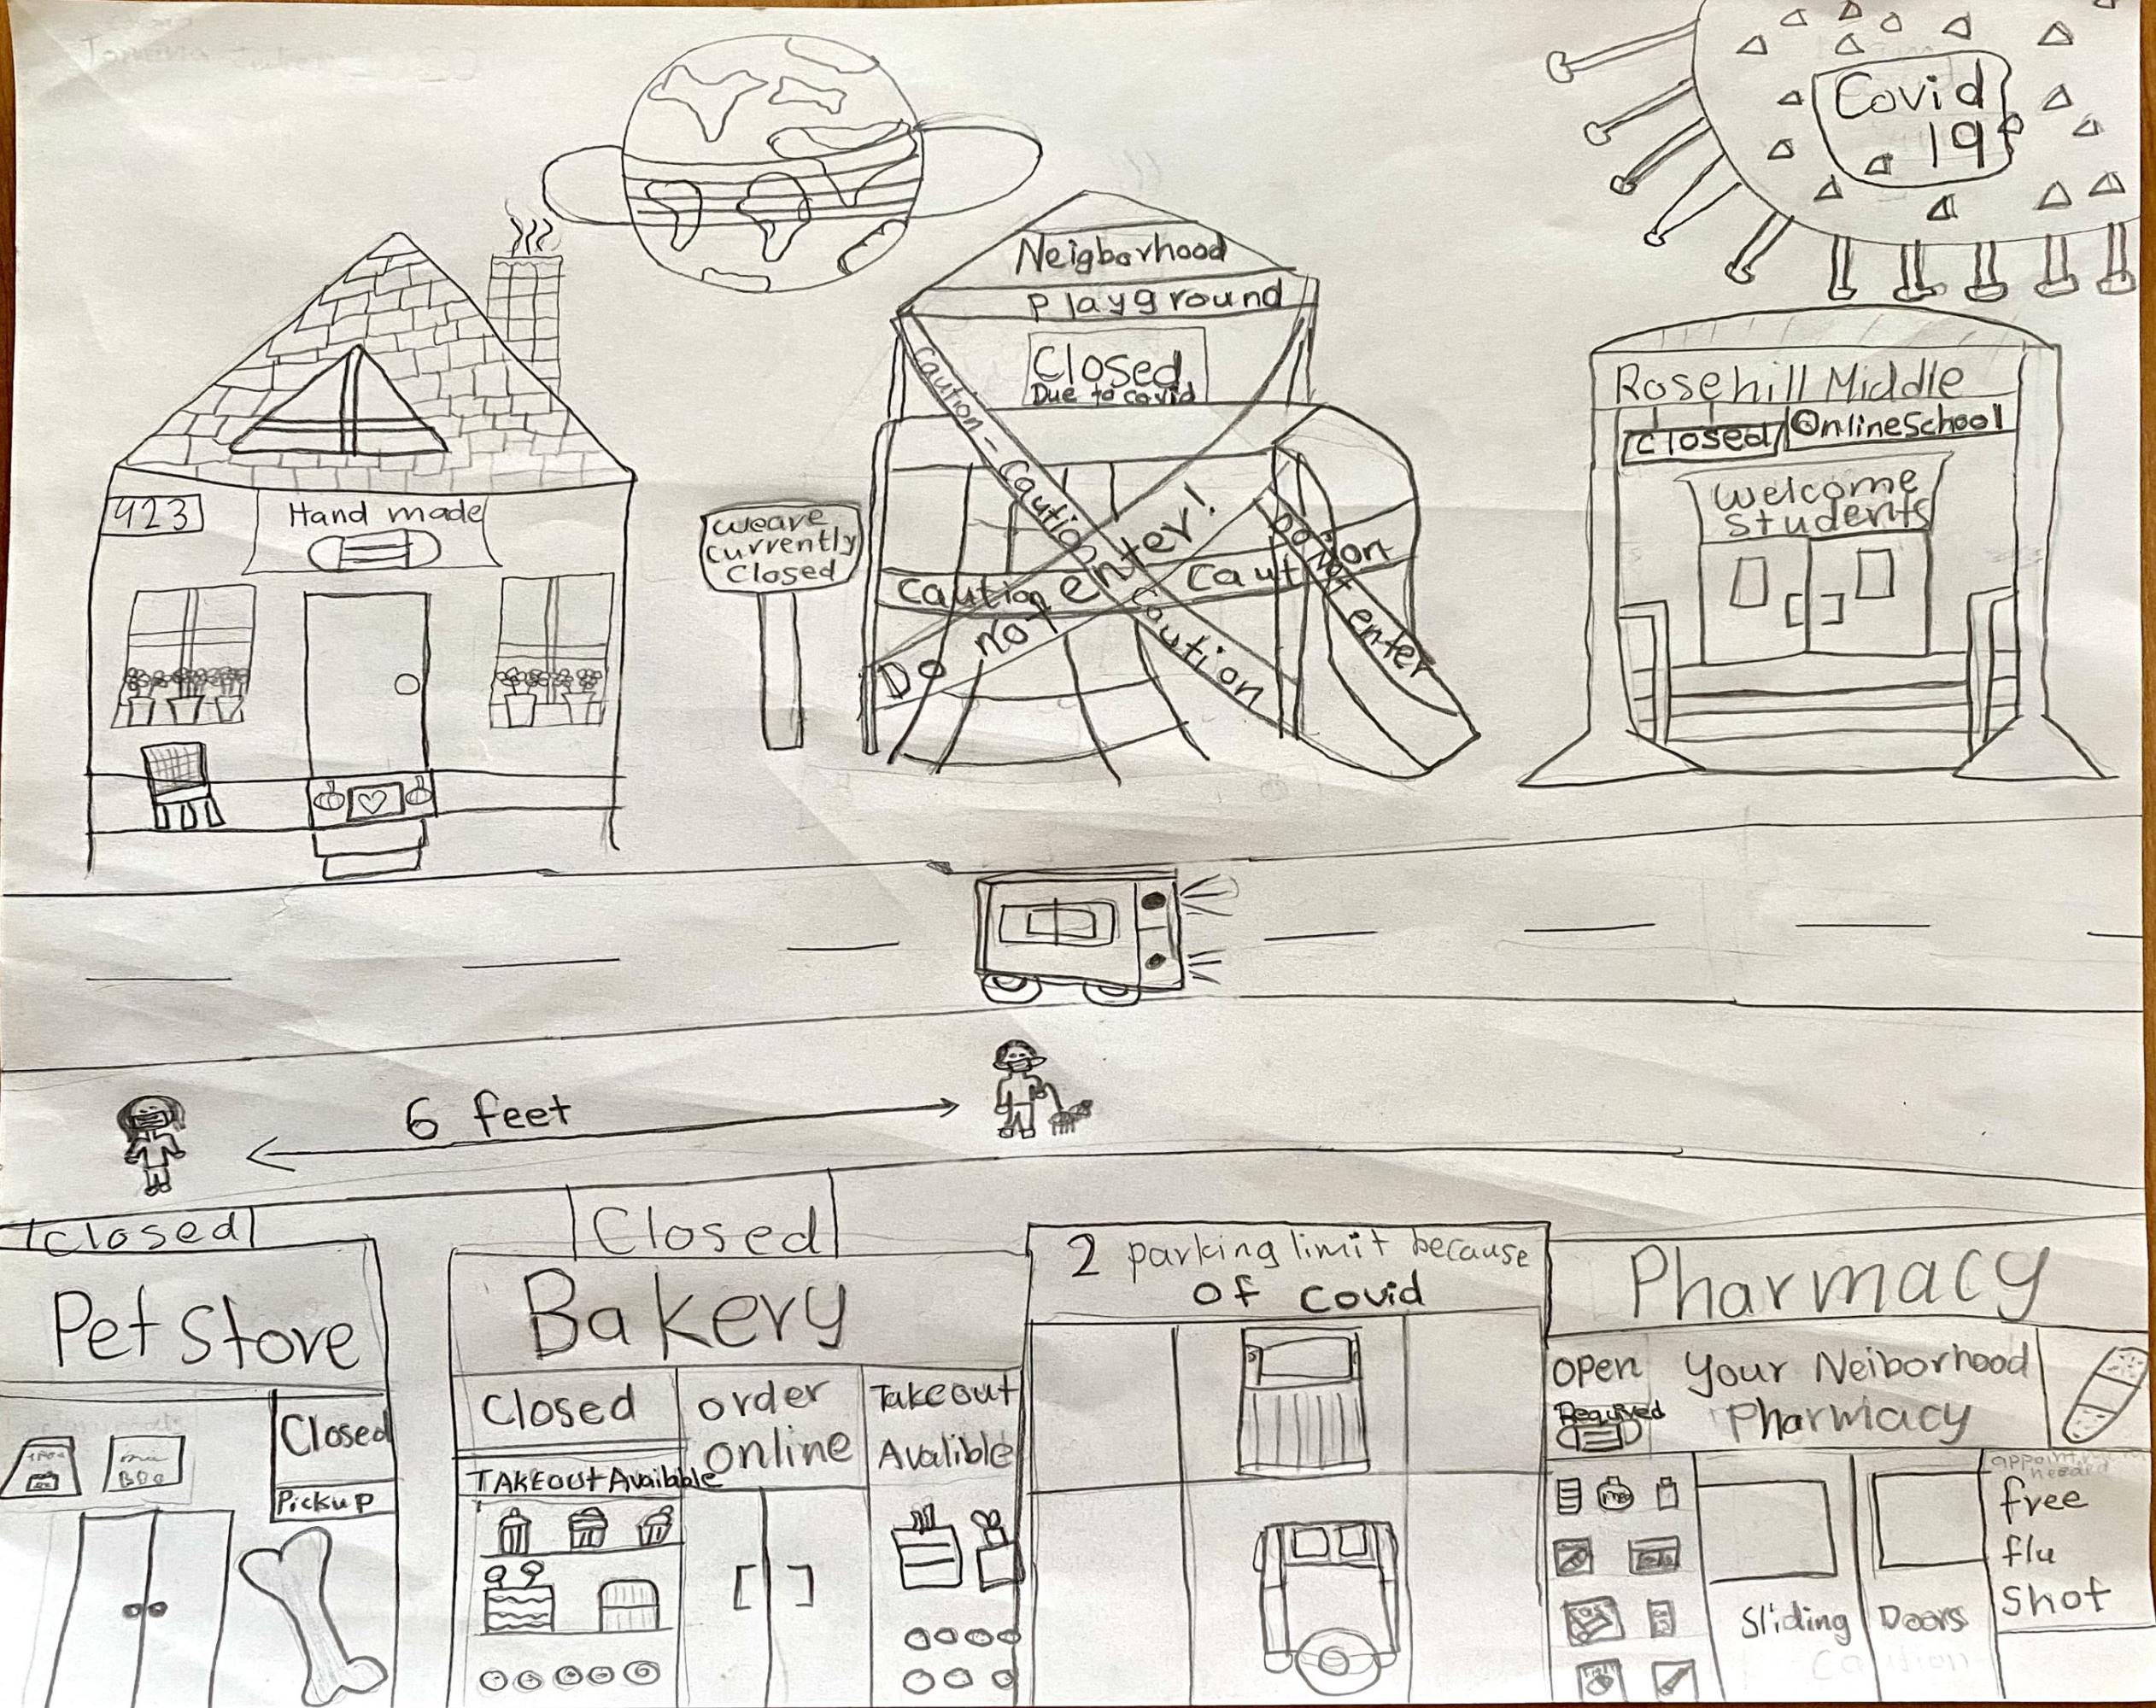 Covid
19
Neigborhood
Playground
Closed
Due to covid
Caution - Caution Caution
Do not enter!
Caution Caution
Do Not enter
Rosehill Middle
Closed
Online School
Welcome
Students
423
Hand made
We are
currently
Closed
6 feet
Closed
Pet Store
Closed
Pickup
Closed
Bakery
Closed
TAKEOUT Available
order
online
Takeout
Avalible
2 parking limit because
Of Covid
Pharmacy
Open
Required
Your Neiborhood
Pharmacy
needed
free
flu
Shot
Sliding Doors
Caution